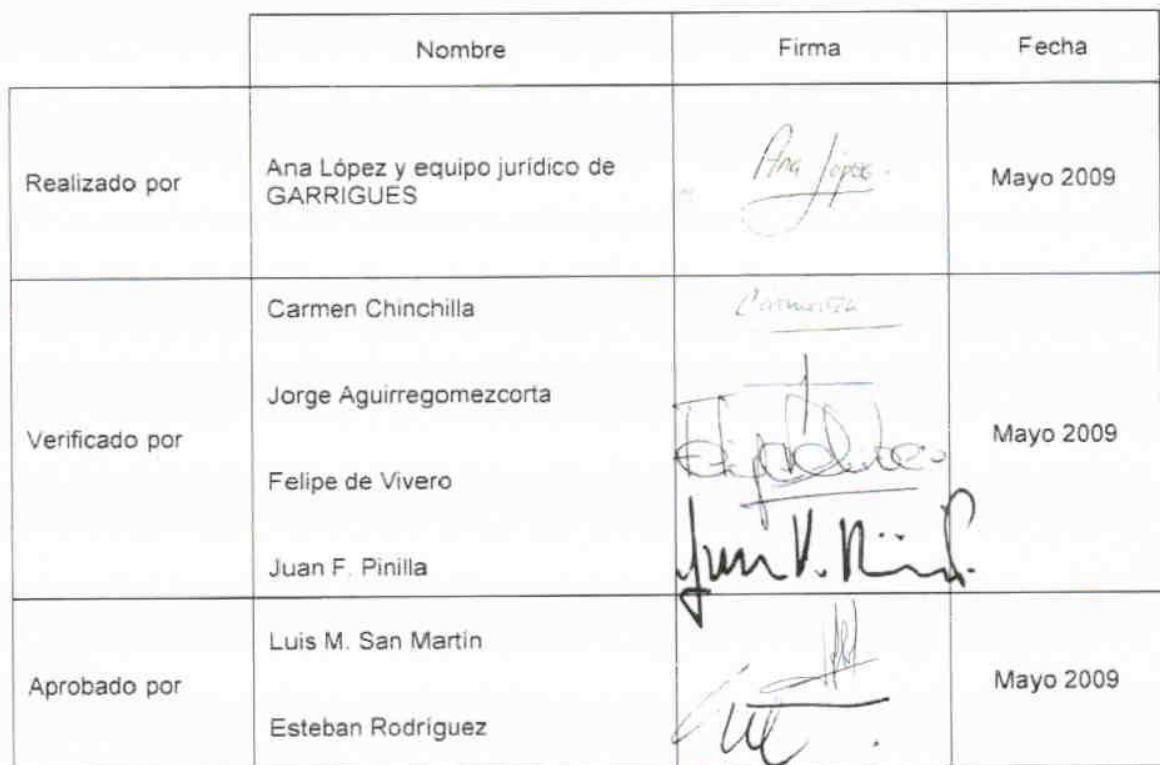 Nombre Firma Fecha
Realizado por
Ana López y equipo jurídico de
GARRIGUES
Ana López.
Mayo 2009
Verificado por
Carmen Chinchilla
Jorge Aguirregomezcorta
Felipe de Vivero
Juan F. Pinilla
Mayo 2009
Aprobado por
Luis M. San Martín
Esteban Rodríguez
Mayo 2009